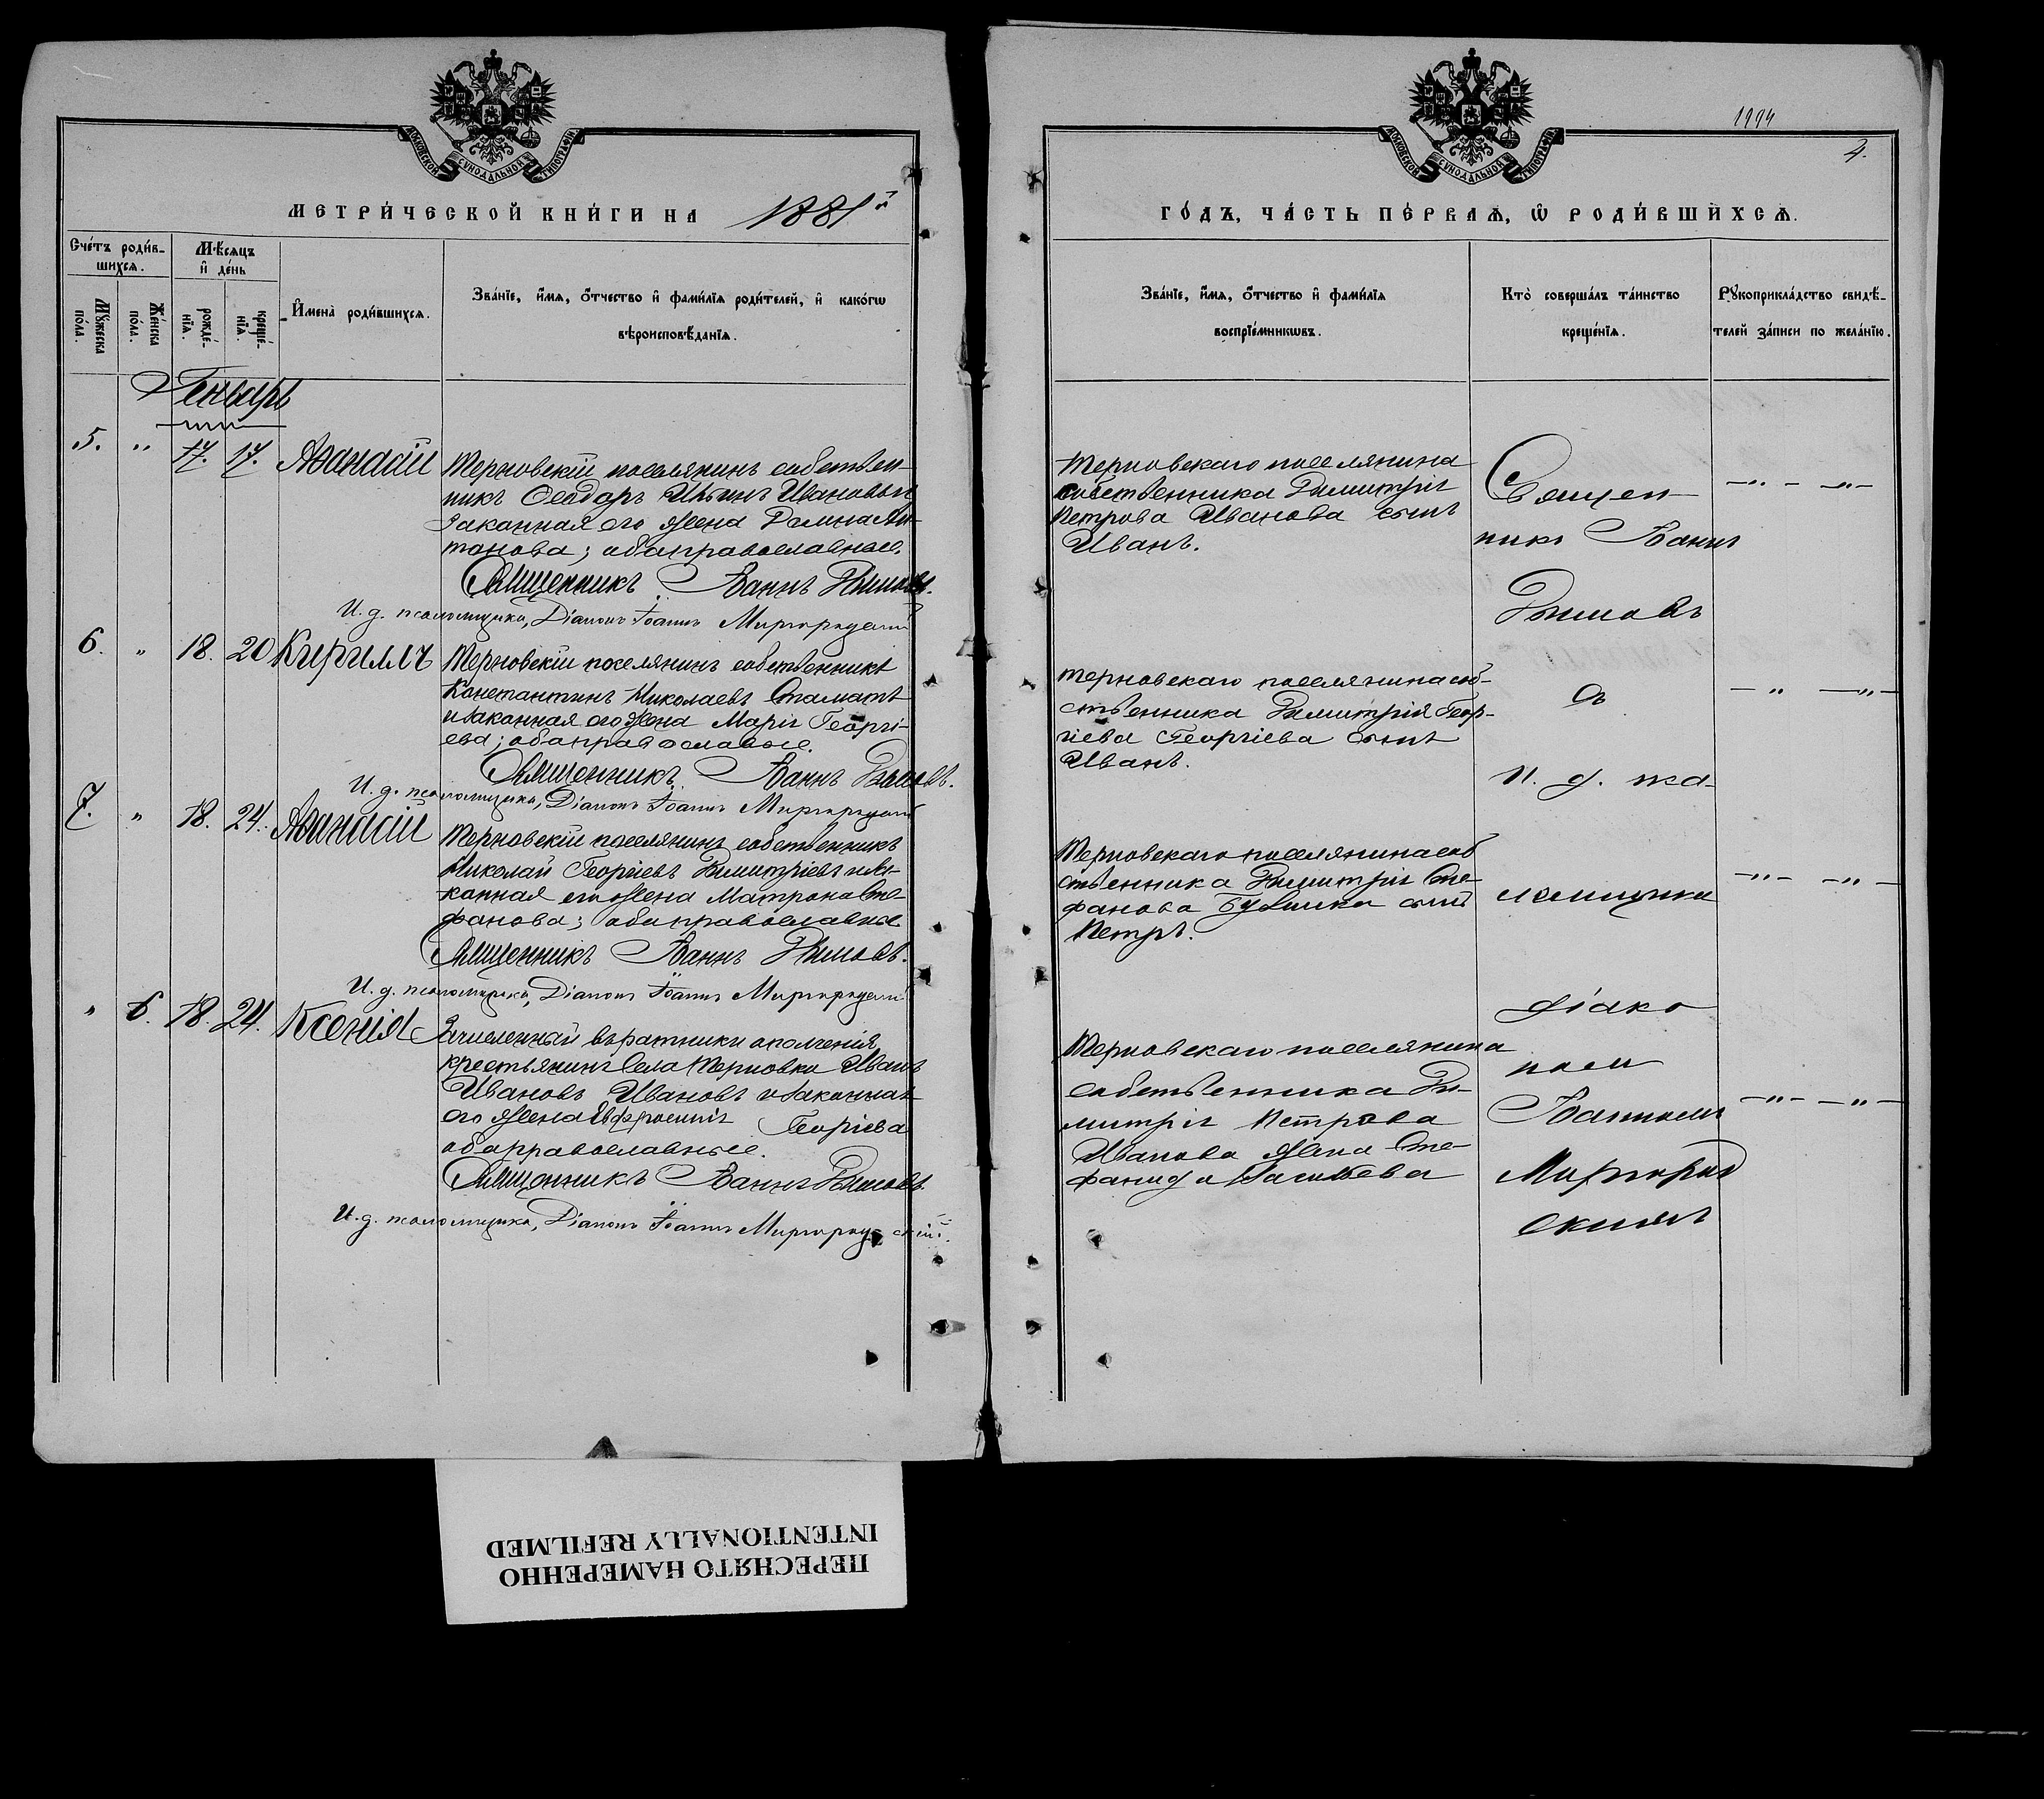 МОСКОВСКОЙ СѴНОДАЛЬНОЙ ТИПОГРАФІИ
МЕТРИ́ЧЕСКОЙ КНИ́ГИ НА 1881й
Сче́тъ роди́в-
шихсѧ.
Мѣ́сѧцъ
и҆ де́нь
Мꙋ́жеска
по́ла.
Же́нска
по́ла.
рожде́-
нїѧ.
креще́-
нїѧ.
И҆мена̀ роди́вшихсѧ.
Зва́нїе, и҆́мѧ, ѻ҆́тчество и҆ фами́лїѧ роди́телей, и҆ како́гѡ
вѣроисповѣ́данїѧ.
Генварь
5. " 17. 17. Аѳанасій
Терновскій поселянинъ собствен-
никъ Ѳеодоръ Ильинъ Ивановъ и
законная его жена Домна Ан-
тонова; оба православные.
Священникъ Іоаннъ Дымовъ.
И. д. псаломщика, Діаконъ Іоаннъ Миргородскій
6. " 18. 20 Кириллъ
Терновскій поселянинъ собственникъ
Константинъ Николаевъ Стаматъ
и законная его жена Марія Георгі-
ева; оба православные.
Священникъ Іоаннъ Дымовъ.
И. д. псаломщика, Діаконъ Іоаннъ Миргородскій
7. " 18. 24. Аѳанасій
Терновскій поселянинъ собственникъ
Николай Георгіевъ Димитріевъ и за-
конная его жена Матрона Сте-
фанова; оба православные
Священникъ Іоаннъ Дымовъ.
И. д. псаломщика, Діаконъ Іоаннъ Миргородскій
" 6. 18. 24. Ксенія
Зачисленный въ ратники ополченія
крестьянинъ Села Терновки Иванъ
Ивановъ Ивановъ и законная
его жена Евфросинія Георгіева
оба православные.
Священникъ Іоаннъ Дымовъ.
И. д. псаломщика, Діаконъ Іоаннъ Миргородскій.
МОСКОВСКОЙ СѴНОДАЛЬНОЙ ТИПОГРАФІИ
1994
4.
ГО́ДЪ, ЧА́СТЬ ПЕ́РВАѦ, Ѡ҆ РОДИ́ВШИХСѦ.
Зва́нїе, и҆́мѧ, ѻ҆́тчество и҆ фами́лїѧ
воспрїе́мникѡвъ.
Кто̀ соверша́лъ та́инство
креще́нїѧ.
Рꙋкоприкла́дство свидѣ́-
телей за́писи по жела́нїю.
Терновскаго поселянина
собственника Димитрія
Петрова Иванова сынъ
Иванъ.
Терновскаго поселянина соб-
ственника Димитрія Геор-
гіева Георгіева сынъ
Иванъ.
Терновскаго поселянина соб
ственника Димитрія Сте-
фанова сынъ
Петръ.
Терновскаго поселянина
собственника Ди-
митрія Петрова
Иванова жена Сте-
фанида Васильева
Священ-
никъ Іоаннъ
Дымовъ
съ
и. д. пса-
ломщика
діако
номъ
Іоанномъ
Миргород
скимъ
-"- -"-
-"- -"-
-"- -"-
-"- -"-
ПЕРЕСНЯТО НАМЕРЕННО
INTENTIONALLY REFILMED